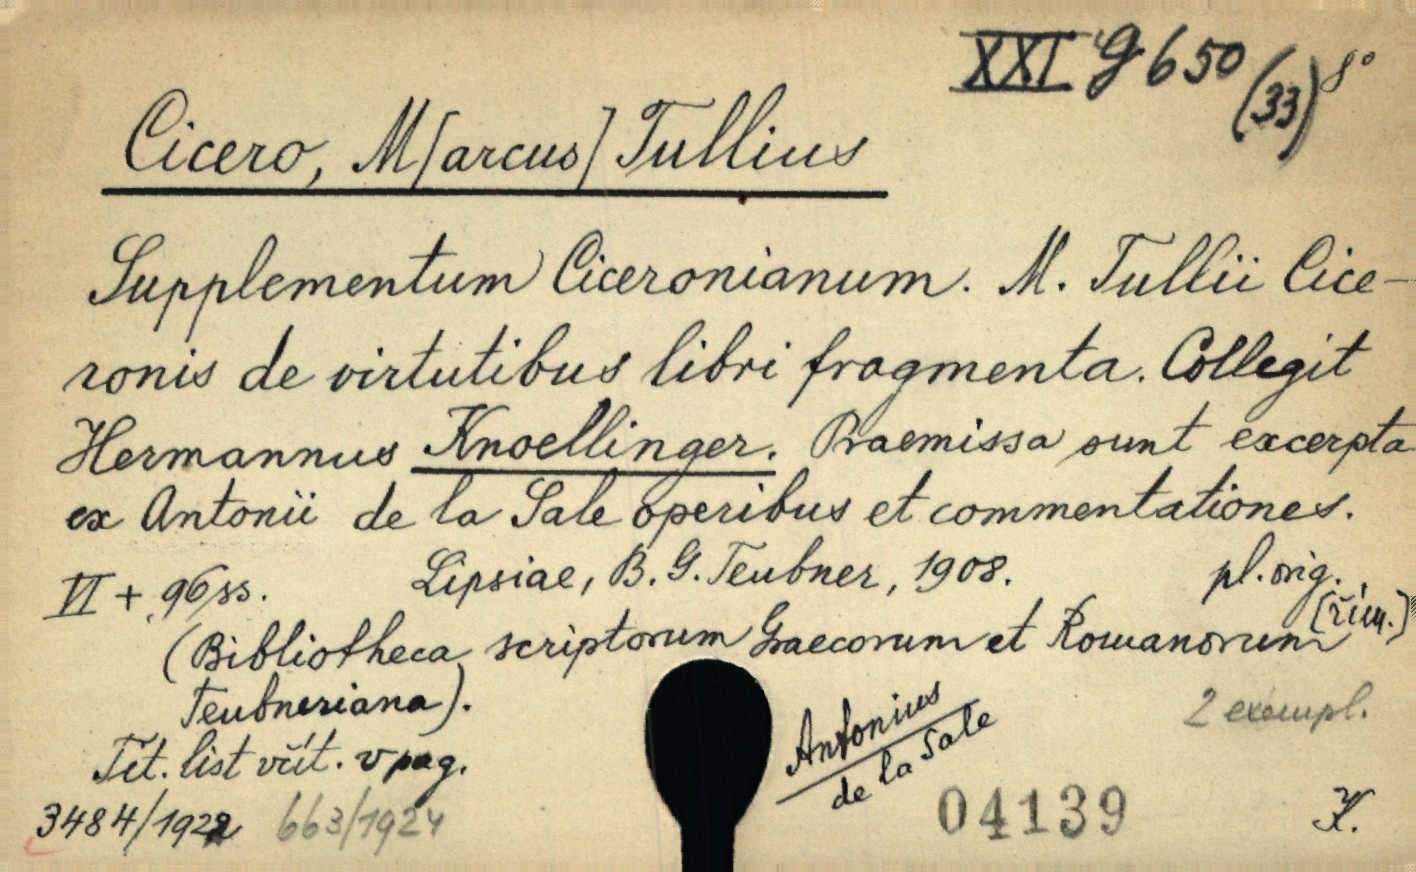 XXI G 650 (33) 8°
Cicero, M[arcus] Tullius
Supplementum Ciceronianum. M. Tullii Cice-
ronis de virtutibus libri fragmenta. Collegit
Hermannus Knoellinger. Praemissa sunt excerpta
ex Antonii de la Sale operibus et commentationes.
VI + 96 ss. Lipsiae, B. G. Teubner, 1908. pl. orig.
(Bibliotheca scriptorum Graecorum et Romanorum [řím.]
Teubneriana).
Tit. list včít. v pag.
Antonius
de la Sale
2 exempl.
3484/1922 663/1924
04139
K.